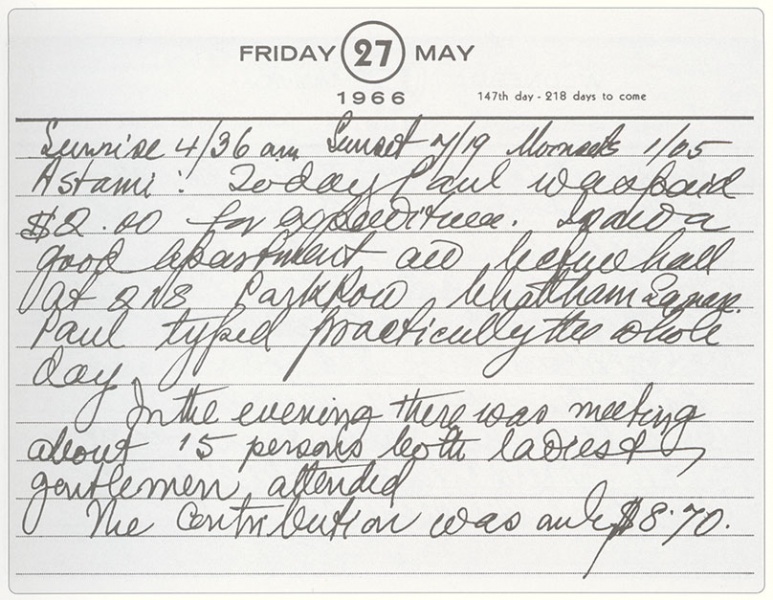 FRIDAY 27 MAY
1966 147th day - 218 days to come
Sunrise 4/36 am Sunset 7/19 Moonsets 1/05
Astami: Today Paul was paid
$2.00 for expenditure. I saw a
good apartment and lecture hall
at Park Row Chattham Square.
Paul typed practically the whole
day.
In the evening there was meeting
about 15 persons both ladies &
gentlemen attended
The Contribution was only $8.70.